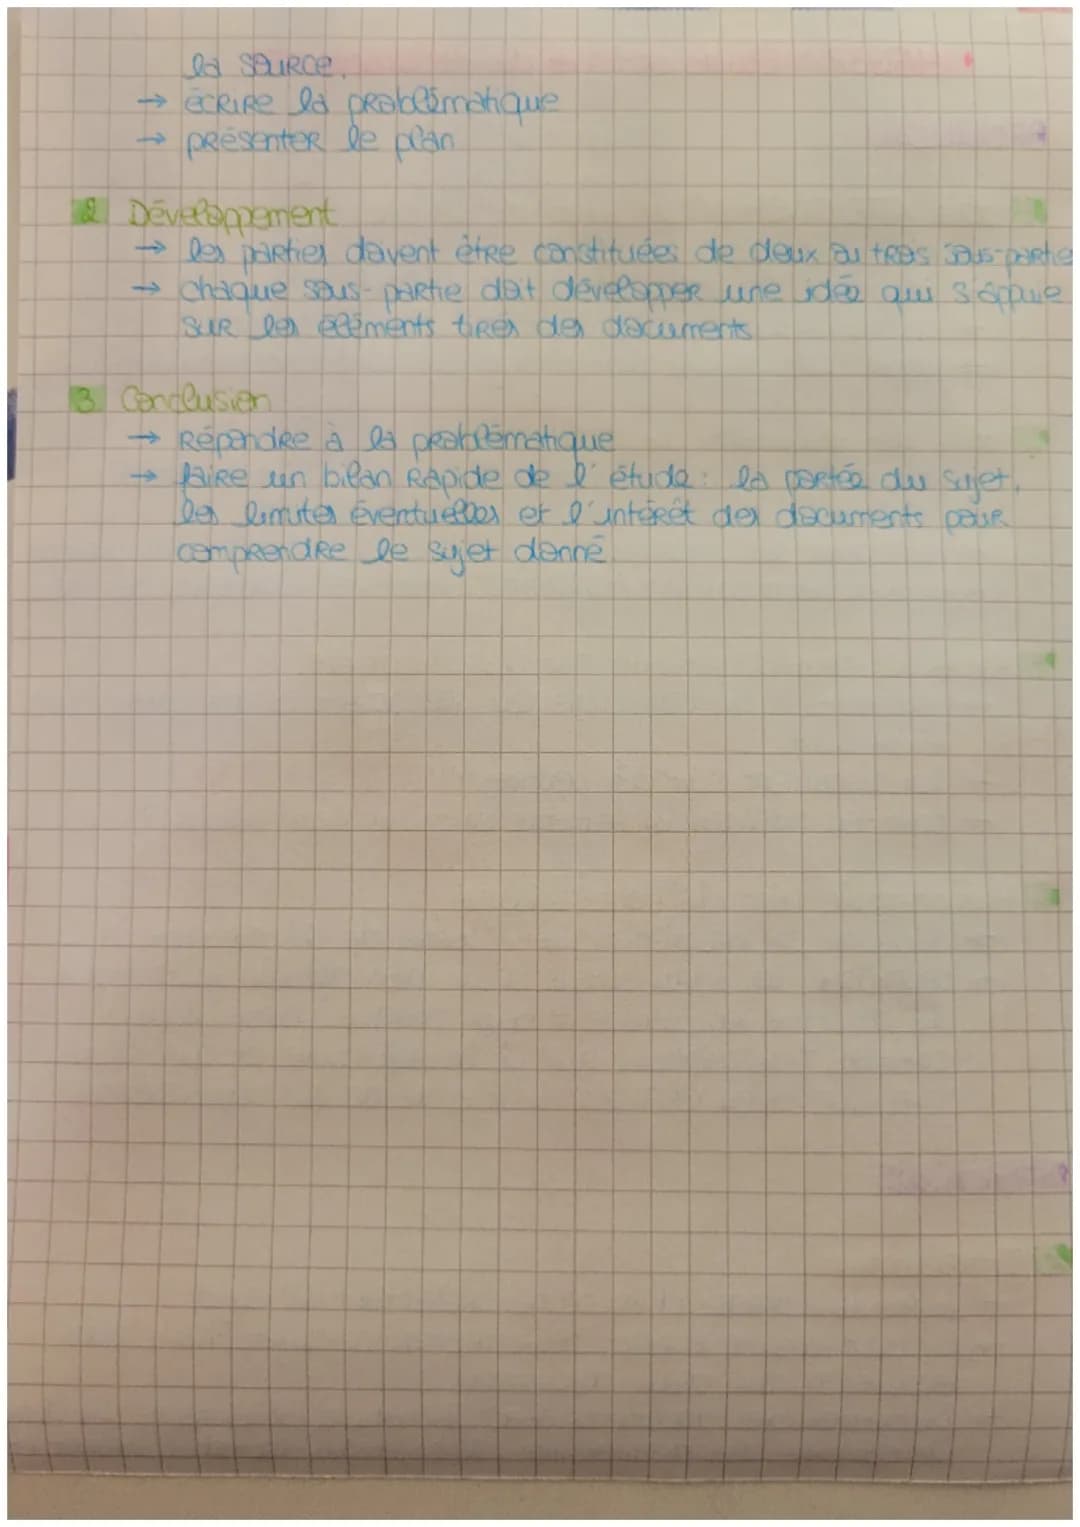 la source.
→ écrire la problématique
→ présenter le plan
2 Développement
→ les parties doivent être constituées de deux ou trois sous-partie
→ chaque sous-partie doit développer une idée qui s'appuie
sur les éléments tirés des documents
3 Conclusion
→ Répondre à la problématique
→ faire un bilan rapide de l'étude : la portée du sujet,
les limites éventuelles et l'intérêt des documents pour
comprendre le sujet donné